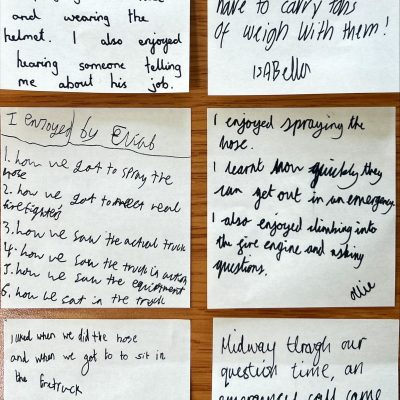 and wearing the
helmet. I also enjoyed
hearing someone telling
me about his job.
have to carry tons
of weigh with them!
ISABella
I enjoyed by
1. how we got to spray the
hose
2. how we got to meet real
firefighters
3. how we saw the actual truck
4. how we saw the truck in action
5. how we saw the equipment
6. how we sat in the truck
I enjoyed spraying the
hose.
I learnt how quickly they
can get out in an emergency
I also enjoyed climbing into
the fire engine and asking
questions.
ollie
I liked when we did the hose
and when we got to to sit in
the firetruck
Midway through our
question time, an
emergency call came